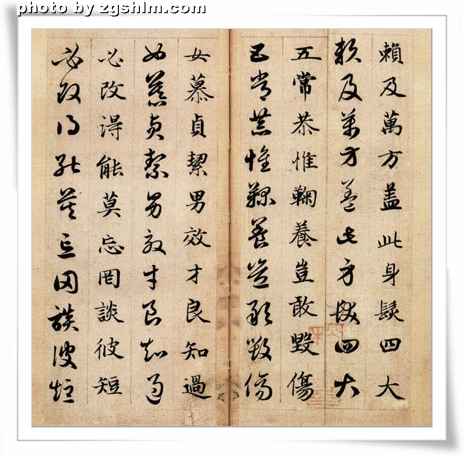 photo by zgshlm.com
賴及萬方盖此身髮四大
賴及萬方盖此身髮四大
五常恭惟鞠養豈敢毀傷
五常恭惟鞠養豈敢毀傷
女慕貞絜男效才良知過
女慕貞絜男效才良知過
必改得能莫忘罔談彼短
必改得能莫忘罔談彼短